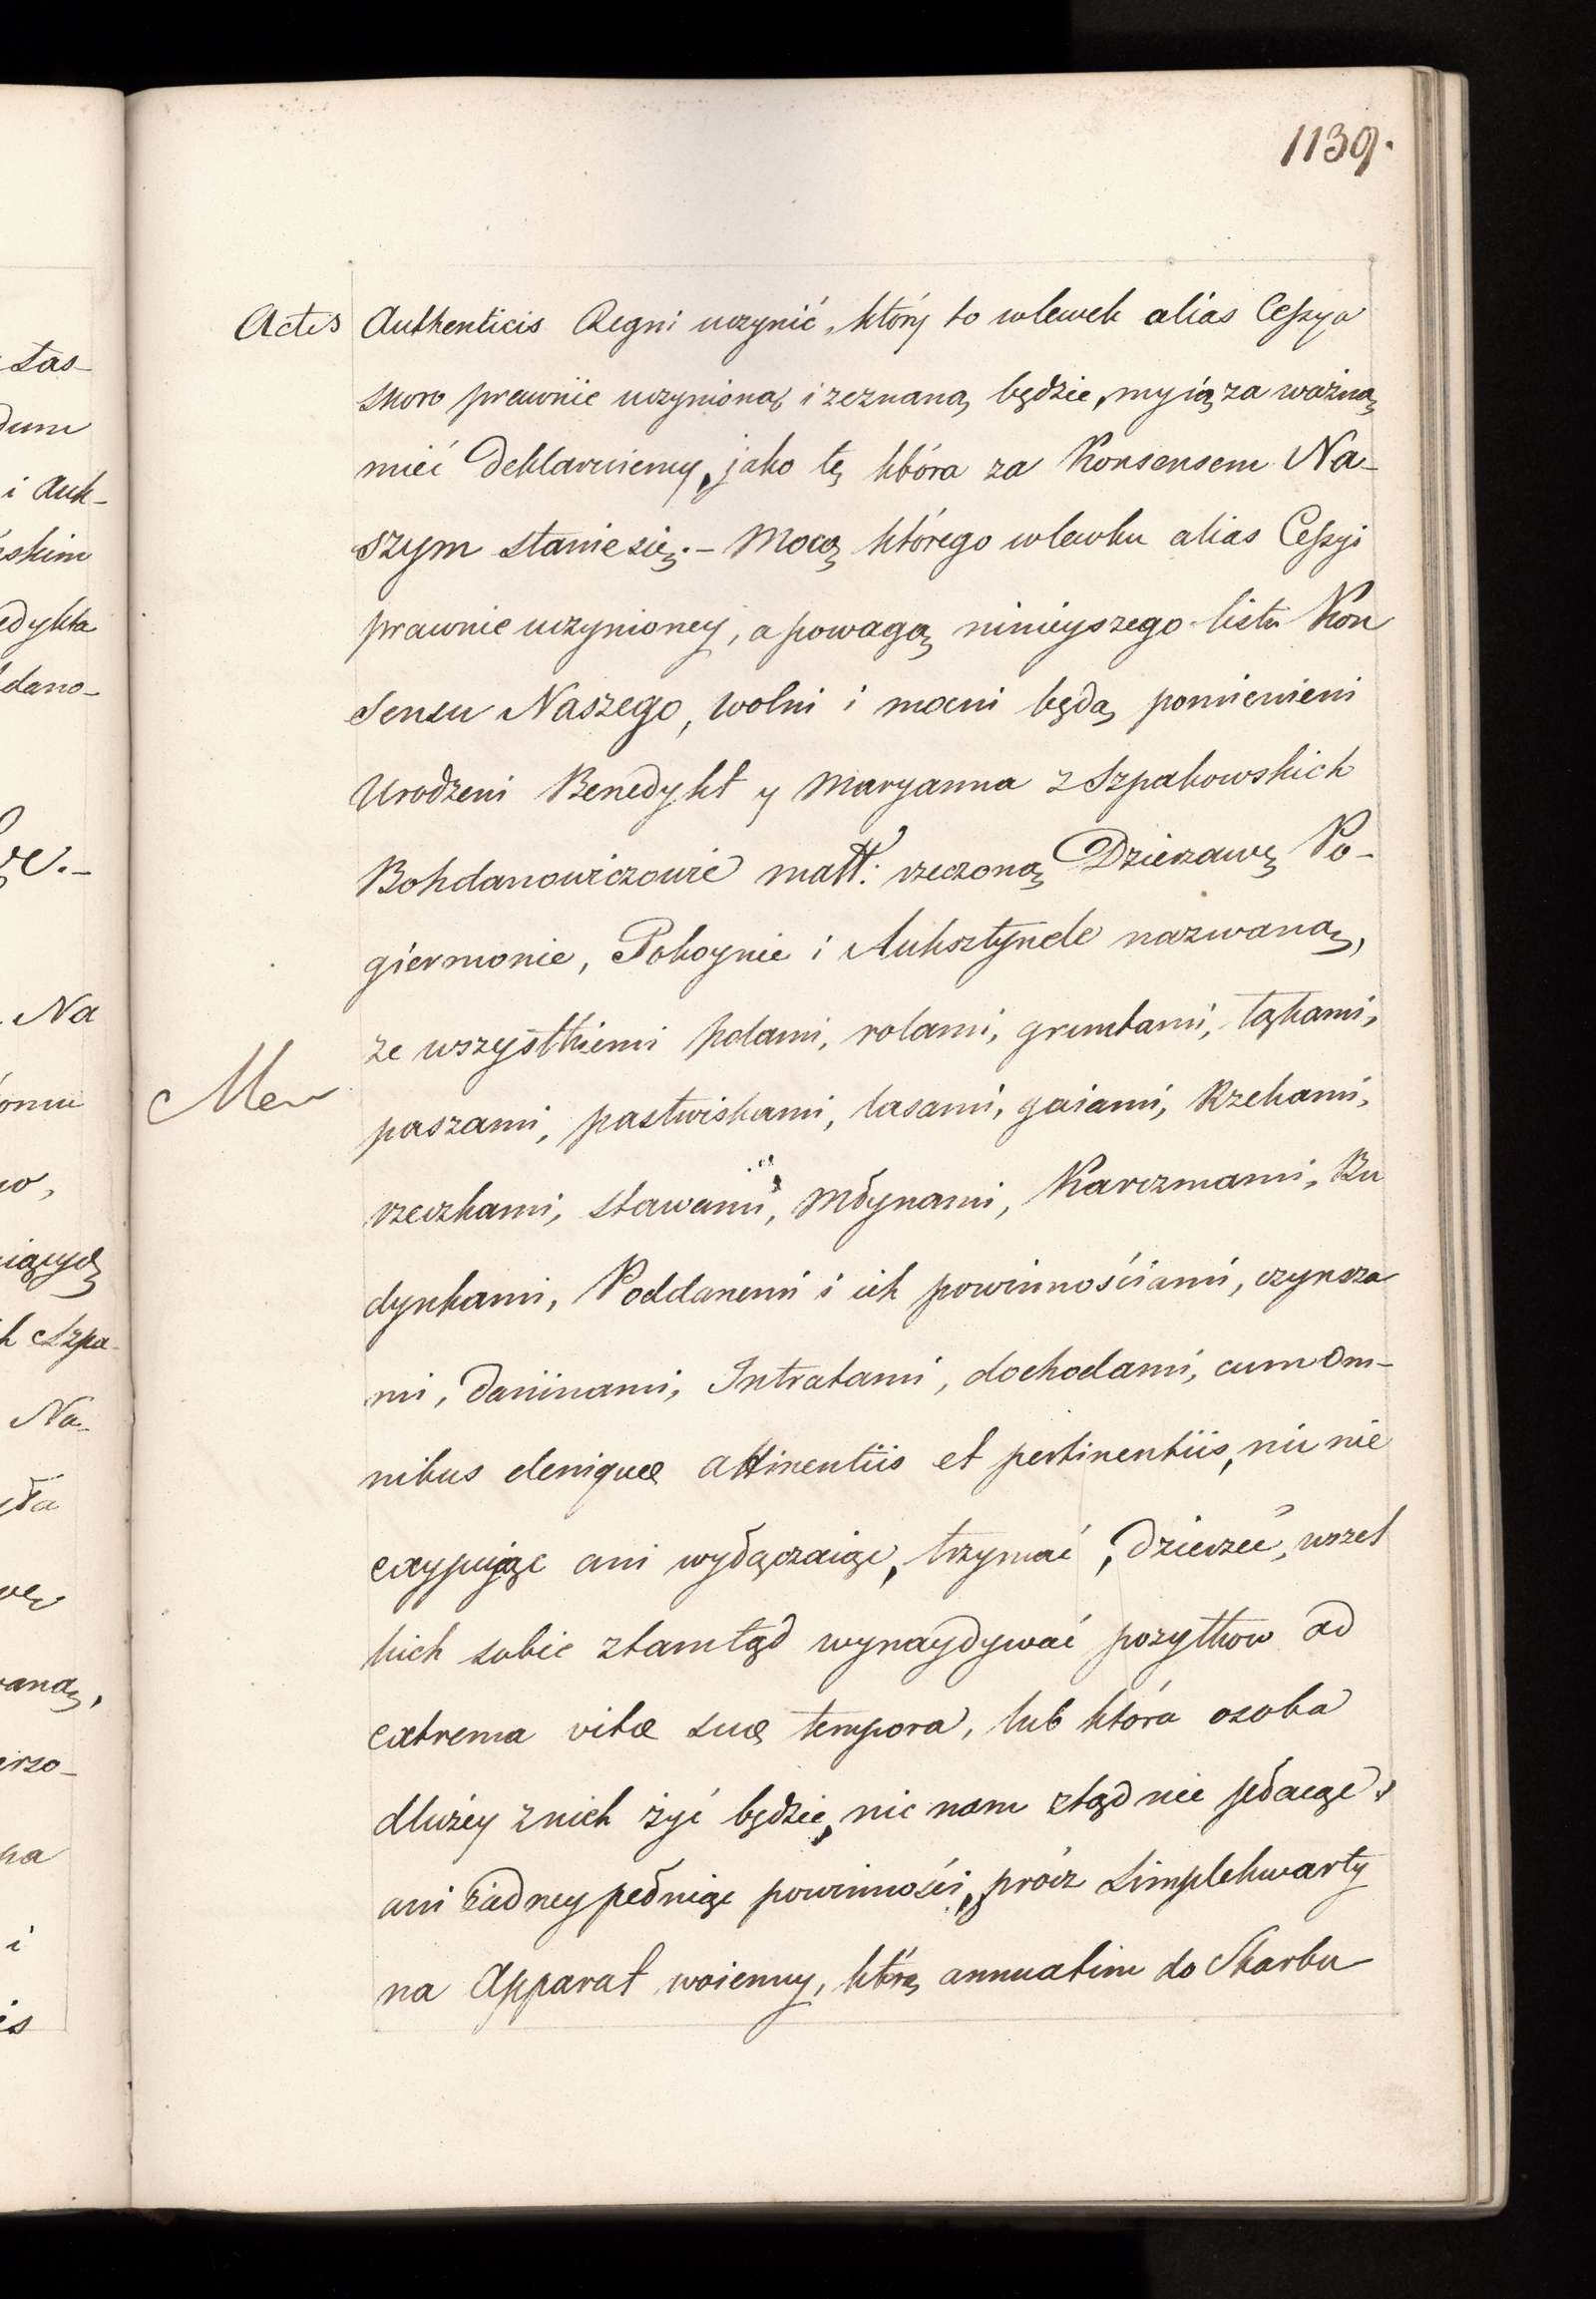 1139.
Actis Authenticis Regni uczynić, który to wlewek alias Ceſsya
skoro prawnie uczynioną i zeznaną będzie, my ią za ważną
mieć deklaruiemy, jako tę która za Konsensem Na-
szym stanie się. – Mocą którego wlewku alias Ceſsyi
prawnie uczynioney, a powagą ninieyszego listu Kon
sensu Naszego, wolni i mocni będą pomienieni
Urodzeni Benedykt y Maryanna z Szpakowskich
Bohdanowiczowie małł: rzeczoną Dzierzawę Po-
giermonie, Pokoynie i Auksztynele nazwaną,
ze wszystkiemi polami, rolami, gruntami, łąkami,
paszami, pastwiskami, lasami, gaiami, Rzekami,
rzeczkami, stawami, Młynami, Karczmami, Bu
dynkami, Poddanemi i ich powinnościami, czynsza
mi, daninami, Intratami, dochodami, cum Om-
nibus denique attinentiis et pertinentiis, nic nie
excypując ani wyłączaiąc, trzymać, dzierzeć, wszel
kich sobie ztamtąd wynaydywać pozytkow ad
extrema vitæ suæ tempora, lub która osoba
dłużey z nich żyć będzie, nic nam ztąd nie płacąc
ani żadney pełniąc powinności, prócz Simplekwarty
na Apparat woienny, którą annuatim do Skarbu